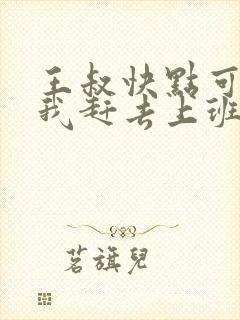 王叔快點可
我赶去上班
茗旗兒